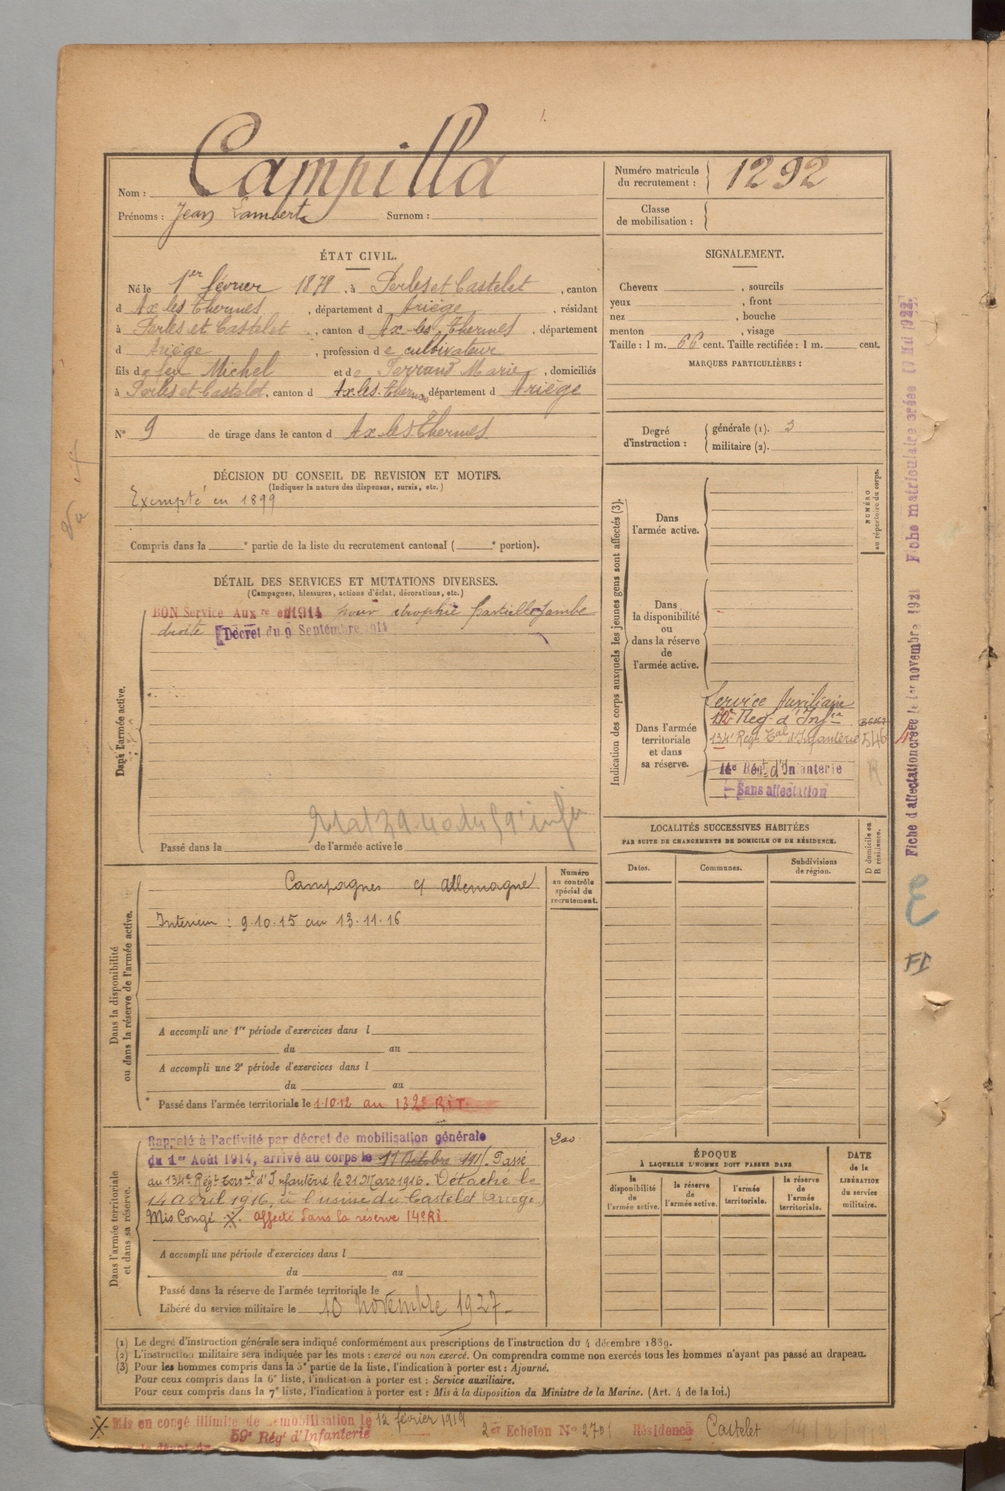 Nom : Campilla
Prénoms : Jean Lambert Surnom :
Numéro matricule du recrutement : 1292
Classe de mobilisation :
ÉTAT CIVIL.
Né le 1er février 1879, à Perles et Castelet, canton
d'Ax les Thermes, département d Ariège, résidant
à Perles et Castelet, canton d Ax-les-Thermes, département
d Ariège, profession de cultivateur
fils de feu Michel et de Ferrand Marie, domiciliés
à Perles et Castelet, canton d Ax-les-Thermes département d Ariège
N° 9 de tirage dans le canton d Ax-les-Thermes
SIGNALEMENT.
Cheveux , sourcils
yeux , front
nez , bouche
menton , visage
Taille : 1 m. 66 cent. Taille rectifiée : 1 m. cent.
MARQUES PARTICULIÈRES :
Degré d'instruction : générale (1). 3
militaire (2).
DÉCISION DU CONSEIL DE REVISION ET MOTIFS.
(Indiquer la nature des dispenses, sursis, etc.)
Exempté en 1899
Compris dans la e partie de la liste du recrutement cantonal ( e portion).
DÉTAIL DES SERVICES ET MUTATIONS DIVERSES.
(Campagnes, blessures, actions d'éclat, décorations, etc.)
Dans l'armée active.
BON Service Auxre en 1914 pour atrophie partielle jambe
droite Décret du 9 Septembre 1914
Passé dans la de l'armée active le
Dans la disponibilité ou dans la réserve de l'armée active.
Campagnes c/ Allemagne
Intérieur : 9.10.15 au 13.11.16
Numéro au contrôle spécial du recrutement.
A accompli une 1re période d'exercices dans l
du au
A accompli une 2e période d'exercices dans l
du au
Passé dans l'armée territoriale le 1.10.12 au 132e R.I.T.
Dans l'armée territoriale et dans sa réserve.
Rappelé à l'activité par décret de mobilisation générale
du 1er Août 1914, arrivé au corps le 11 Octobre 1915. Passé
au 134e Régt Terral d'Infanterie le 21 Mars 1916. Détaché le
14 avril 1916, à l'usine du Castelet (Ariège)
Mis Congé X. affecté dans la réserve 14e RI.
A accompli une période d'exercices dans l
du au
Passé dans la réserve de l'armée territoriale le
Libéré du service militaire le 10 novembre 1927
Indication des corps auxquels les jeunes gens sont affectés (3).
NUMÉRO au répertoire du corps.
Dans l'armée active.
Dans la disponibilité ou dans la réserve de l'armée active.
Dans l'armée territoriale et dans sa réserve.
Service Auxiliaire
134e Régt Tal d'Infanterie 546
14e Régt d'Infanterie
Sans affectation
LOCALITÉS SUCCESSIVES HABITÉES
PAR SUITE DE CHANGEMENTS DE DOMICILE OU DE RÉSIDENCE.
D domicile ou R résidence.
Dates. Communes. Subdivisions de région.
ÉPOQUE
À LAQUELLE L'HOMME DOIT PASSER DANS
la disponibilité de l'armée active. la réserve de l'armée active. l'armée territoriale. la réserve de l'armée territoriale.
DATE de la LIBÉRATION du service militaire.
(1) Le degré d'instruction générale sera indiqué conformément aux prescriptions de l'instruction du 4 décembre 1889.
(2) L'instruction militaire sera indiquée par les mots : exercé ou non exercé. On comprendra comme non exercés tous les hommes n'ayant pas passé au drapeau.
(3) Pour les hommes compris dans la 5e partie de la liste, l'indication à porter est : Ajourné.
Pour ceux compris dans la 6e liste, l'indication à porter est : Service auxiliaire.
Pour ceux compris dans la 7e liste, l'indication à porter est : Mis à la disposition du Ministre de la Marine. (Art. 4 de la loi.)
X Mis en congé illimité de démobilisation le 12 février 1919
2er Echelon No 2701 Résidence Castelet
59e Régt d'Infanterie
Fiche d'affectation créée le 1er novembre 1921
Fiche matriculaire créée
FI